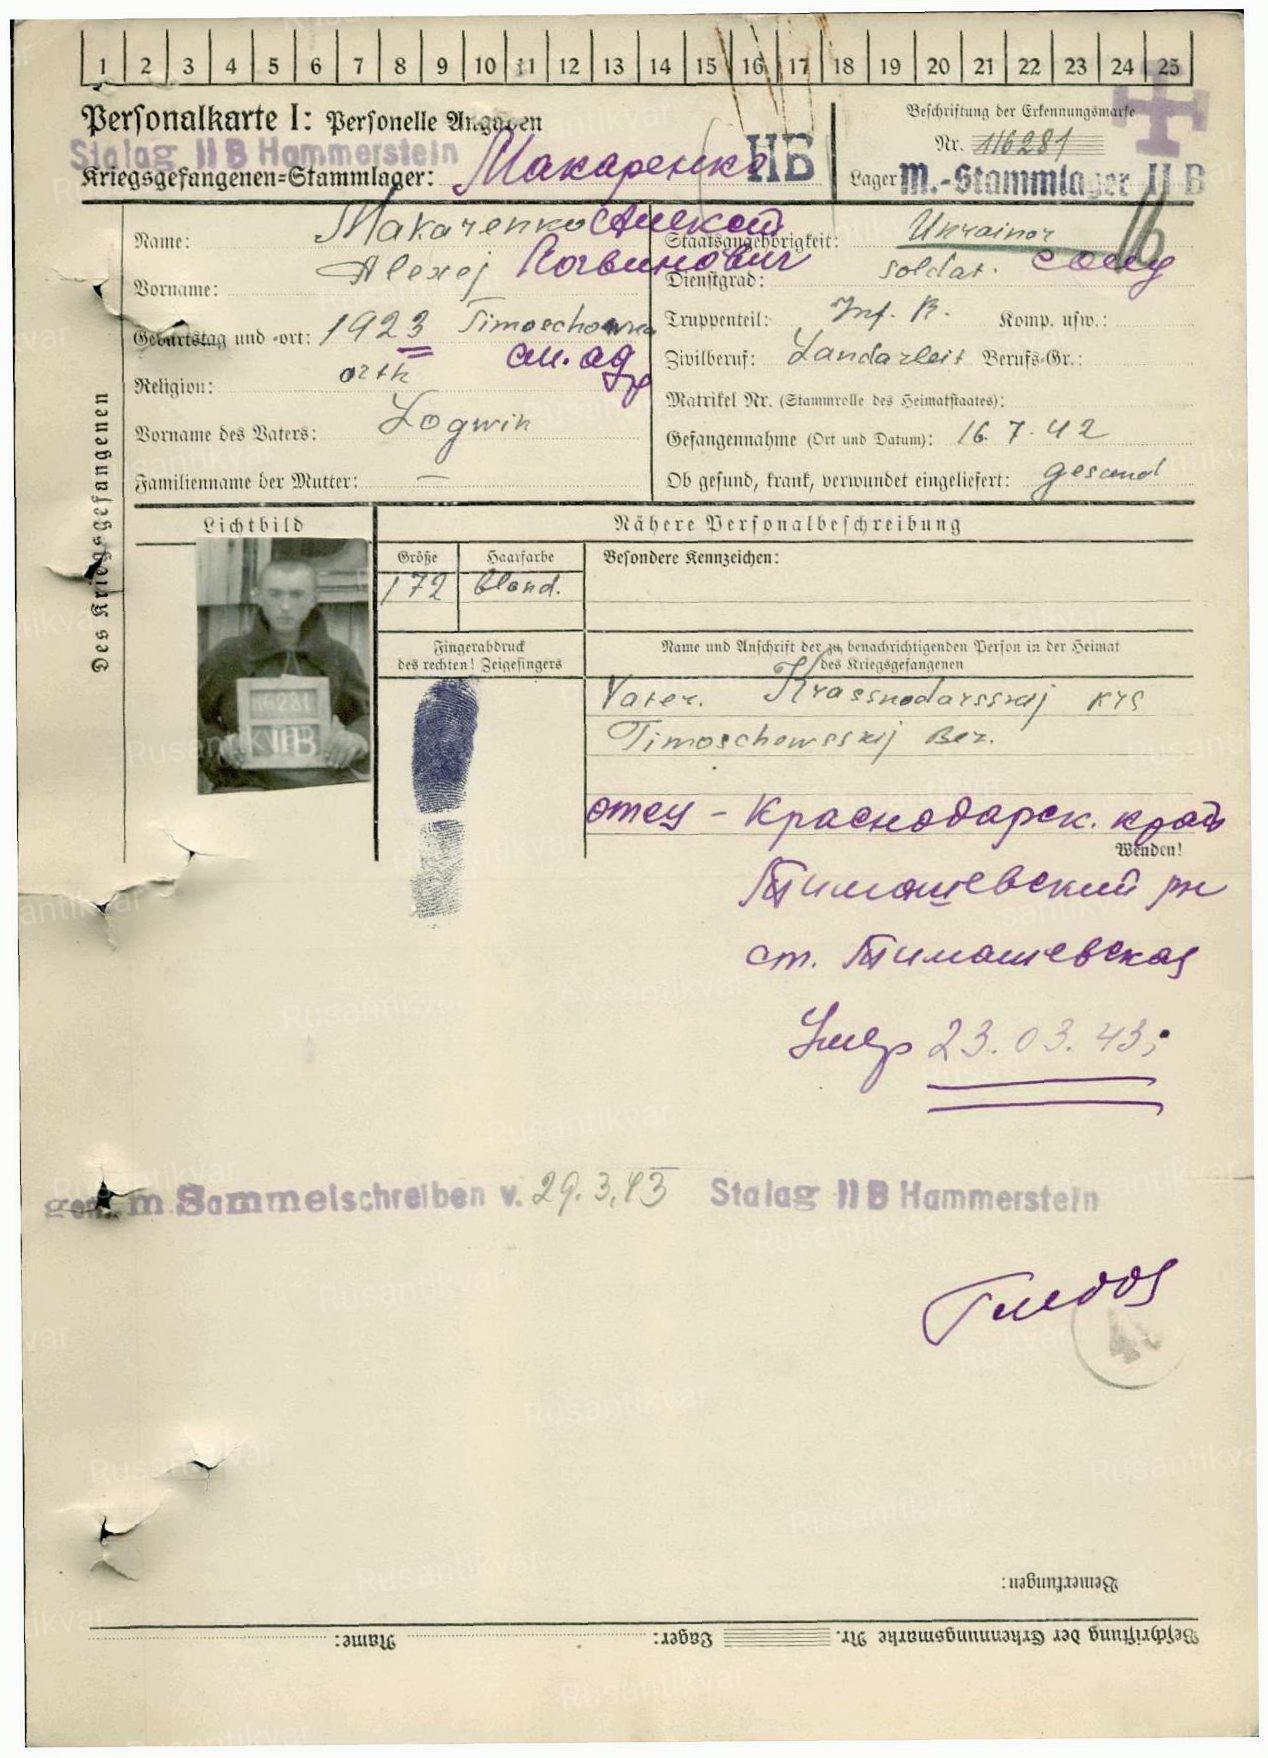 1 2 3 4 5 6 7 8 9 10 11 12 13 14 15 16 17 18 19 20 21 22 23 24 25
Personalkarte I: Personelle Angaben
Beschriftung der Erkennungsmarke
Stalag II B Hammerstein
Nr. 116281
Kriegsgefangenen=Stammlager: Макаренко
Lager M.-Stammlager II B
Des Kriegsgefangenen
Name: Makarenko Алексей
Staatsangehörigkeit: Ukrainer
Vorname: Alexej Логвинович
Dienstgrad: soldat. солд
Geburtstag und -ort: 1923 Timoschowka
Truppenteil: Inf. R. Komp. usw.:
см. адр
Zivilberuf: Landarbeit Berufs-Gr.:
Religion: orth
Matrikel Nr. (Stammrolle des Heimatstaates):
Vorname des Vaters: Logwin
Gefangennahme (Ort und Datum): 16. 7. 42
Familienname der Mutter: —
Ob gesund, krank, verwundet eingeliefert: gesund
Lichtbild
Nähere Personalbeschreibung
Größe Haarfarbe Besondere Kennzeichen:
172 blond.
Fingerabdruck
des rechten! Zeigefingers
Name und Anschrift der zu benachrichtigenden Person in der Heimat
des Kriegsgefangenen
116281
Vater. Krassnodarsskij
Timoschewsskij Bez.
отец - Краснодарск. край
Wenden!
Тимашевский рн
ст. Тимашевская
Умер 23.03.43;
gem. m Sammelschreiben v. 29.3.43 Stalag II B Hammerstein
Bemerkungen:
Beschriftung der Erkennungsmarke Nr. Lager: Name: